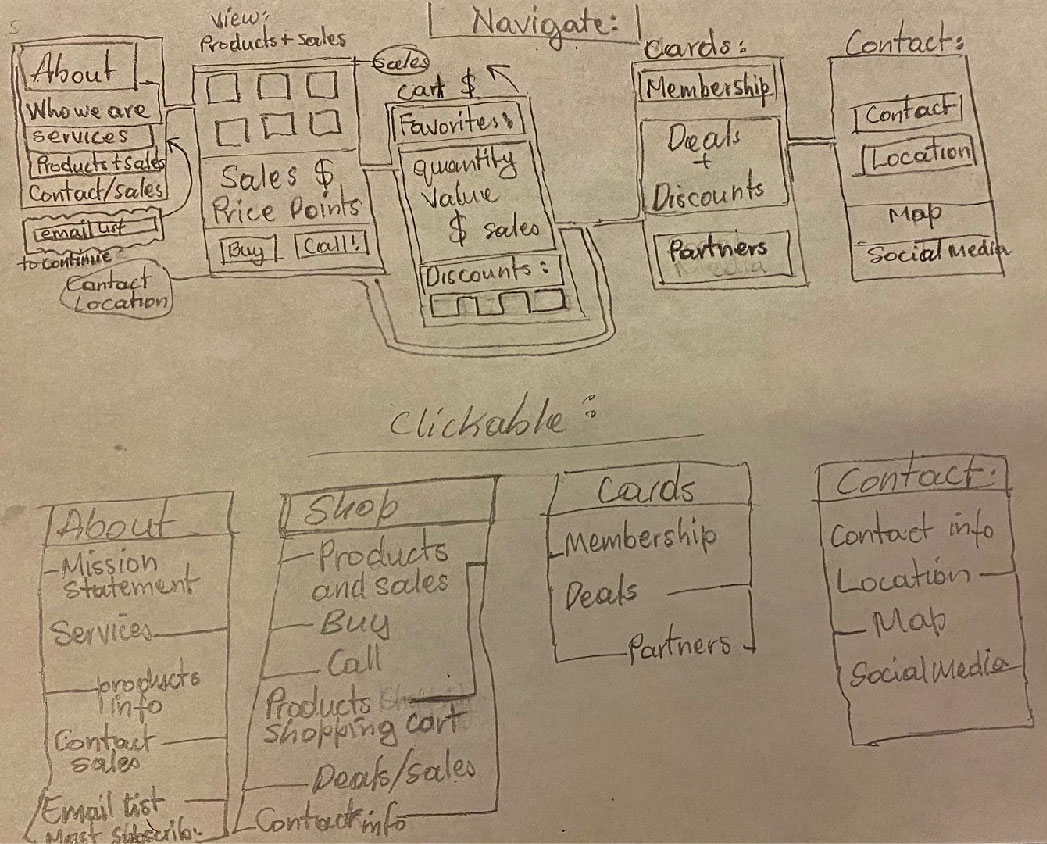 S
View:
Products + sales
Navigate:
About
Who we are
services
Products + sales
Contact/sales
email list
to continue
Contact
Location
Sales $
Price Points
Buy
Call!
Sales
Cart $
Favorites:
quantity
Value
$ sales
Discounts:
Cards:
Membership
Deals
+
Discounts
Partners
Contact:
Contact
Location
Map
Social Media
Clickable:
About
Mission
Statement
Services
products
info
Contact
sales
Email List
Must Subscribe
Shop
Products
and sales
Buy
Call
Products
Shopping Cart
Deals/sales
Contact info
Cards
Membership
Deals
Partners
Contact:
Contact info
Location
Map
Social Media